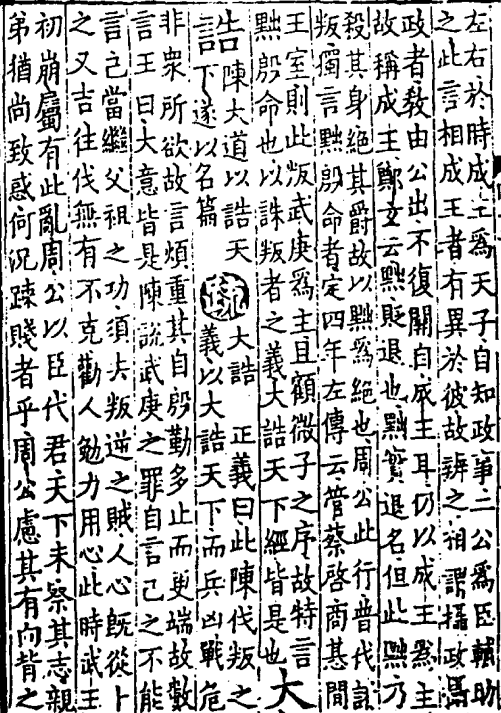 左右於時成王爲天子自知政事二公爲臣輔助
之此言相成王者有異於彼故辨之相謂攝政攝
政者敎由公出不復關自成王耳仍以成王爲主
故稱成王鄭玄云黜貶退也黜實退名但此黜乃
殺其身絕其爵故以黜爲絕也周公此行普伐諸
叛獨言黜殷命者定四年左傳云管蔡啓商惎間
王室則此叛武庚爲主且顧微子之序故特言
黜殷命也以誅叛者之義大誥天下經皆是也大
誥陳大道以誥天
下遂以名篇
疏
大誥 正義曰此陳伐叛之
義以大誥天下而兵凶戰危
非衆所欲故言煩重其自殷勤多止而更端故數
言王曰大意皆是陳說武庚之罪自言己之不能
言己當繼父祖之功須去叛逆之賊人心旣從卜
之又吉往伐無有不克勸人勉力用心此時武王
初崩屬有此亂周公以臣代君天下未察其志親
弟猶尚致惑何況踈賤者乎周公慮其有向背之